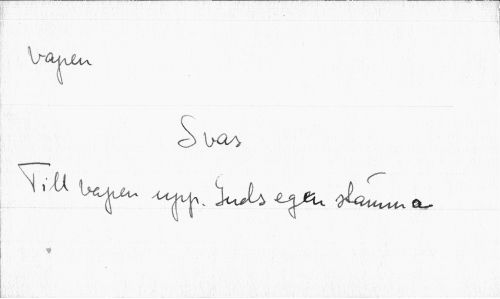 vapen
Svas
Till vapen upp. Guds egen stämma